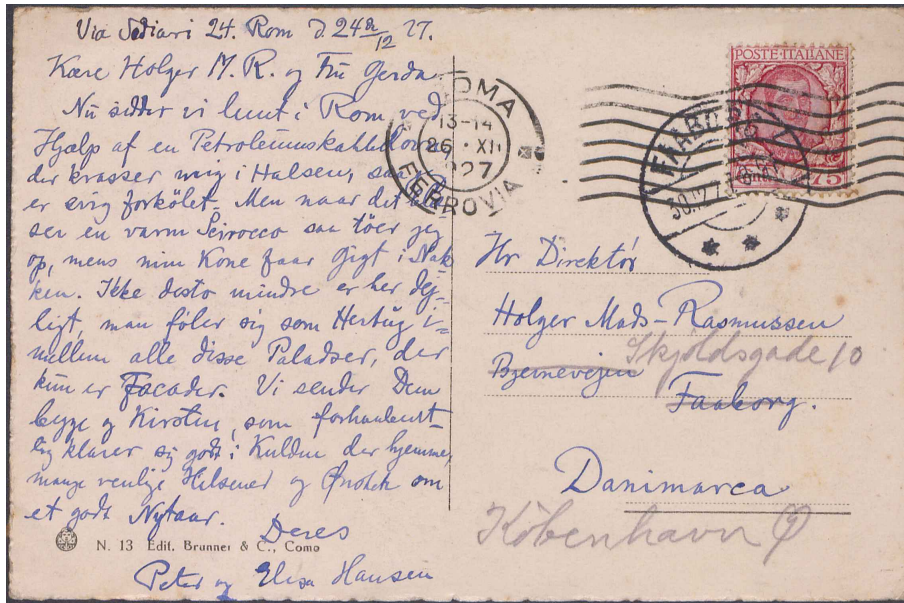 Via Sediari 24. Rom d 24de/12 27.
Kære Holger M. R. og Fru Gerda.
Nu sidder vi lunt i Rom ved
Hjælp af en Petroleumskakkelovn,
der krasser mig i Halsen, saa jeg
er evig forkölet. Men naar det blæ-
ser en varm Scirocco saa töer jeg
op, mens min Kone faar Gigt i Nak
ken. Ikke desto mindre er her dej-
ligt, man föler sig som Hertug i-
mellem alle disse Paladser, der
kun er Facader. Vi sender Dem
begge og Kirsten, som forhaabent-
lig klarer sig godt i Kulden der hjemme,
mange venlige Hilsener og Önsket om
et godt Nytaar.
Deres
Peter og Elisa Hansen
N. 13 Edit. Brunner & C., Como
ROMA
13-14
26 · XII
1927
FERROVIA
POSTE·ITALIANE
75
FAABORG
30.12.
Hr Direktör
Holger Mads-Rasmussen
Bjernevejen Skjoldsgade 10
Faaborg.
Danimarca
Köbenhavn Ø